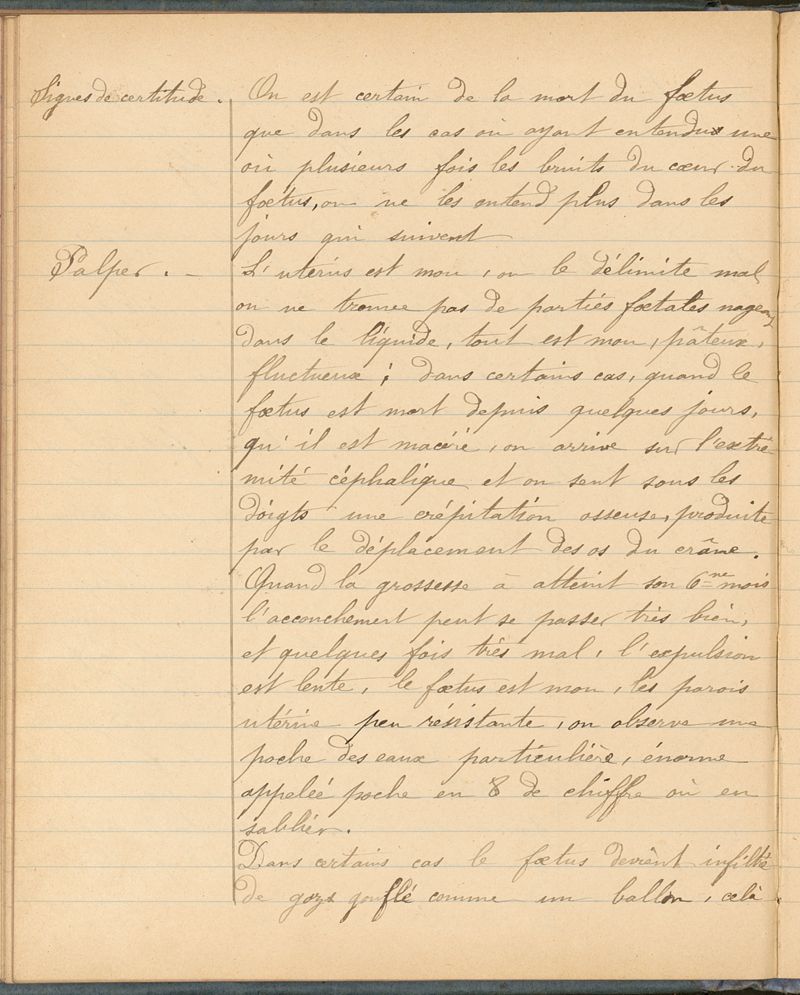 Signes de certitude. On est certain de la mort du fœtus
que dans les cas où ayant entendu une
où plusieurs fois les bruits du cœur du
fœtus, on ne les entend plus dans les
jours qui suivent
Palper. – L'utérus est mou, on le délimite mal
on ne trouve pas de parties fœtales nageant
dans le liquide, tout est mou, pâteux,
fluctueux ; dans certains cas, quand le
fœtus est mort depuis quelques jours,
qu'il est macéré, on arrive sur l'extré
mité céphalique et on sent sous les
doigts une crépitation osseuse, produite
par le déplacement des os du crâne.
Quand la grossesse à atteint son 6me mois
l'accouchement peut se passer très bien,
et quelques fois très mal, l'expulsion
est lente, le fœtus est mou, les parois
utérine peu résistante, on observe une
poche des eaux particulière, énorme
appelée poche en 8 de chiffre où en
sablier.
Dans certains cas le fœtus devient infiltré
de gaz gonflé comme un ballon, celà